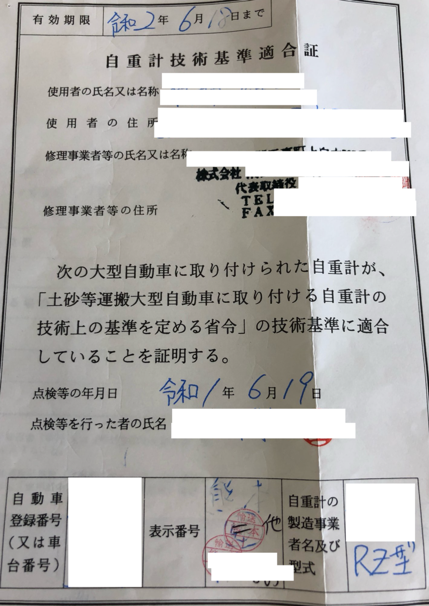 有効期限 令和2年6月18日まで
自重計技術基準適合証
使用者の氏名又は名称
使用者の住所
修理事業者等の氏名又は名称
株式会社
代表取締役
修理事業者等の住所
TEL
FAX
次の大型自動車に取り付けられた自重計が、
「土砂等運搬大型自動車に取り付ける自重計の
技術上の基準を定める省令」の技術基準に適合
していることを証明する。
点検等の年月日 令和1年6月19日
点検等を行った者の氏名
自動車
登録番号
(又は車
台番号)
表示番号
他
自重計の
製造事業
者名及び
型式
RZ型